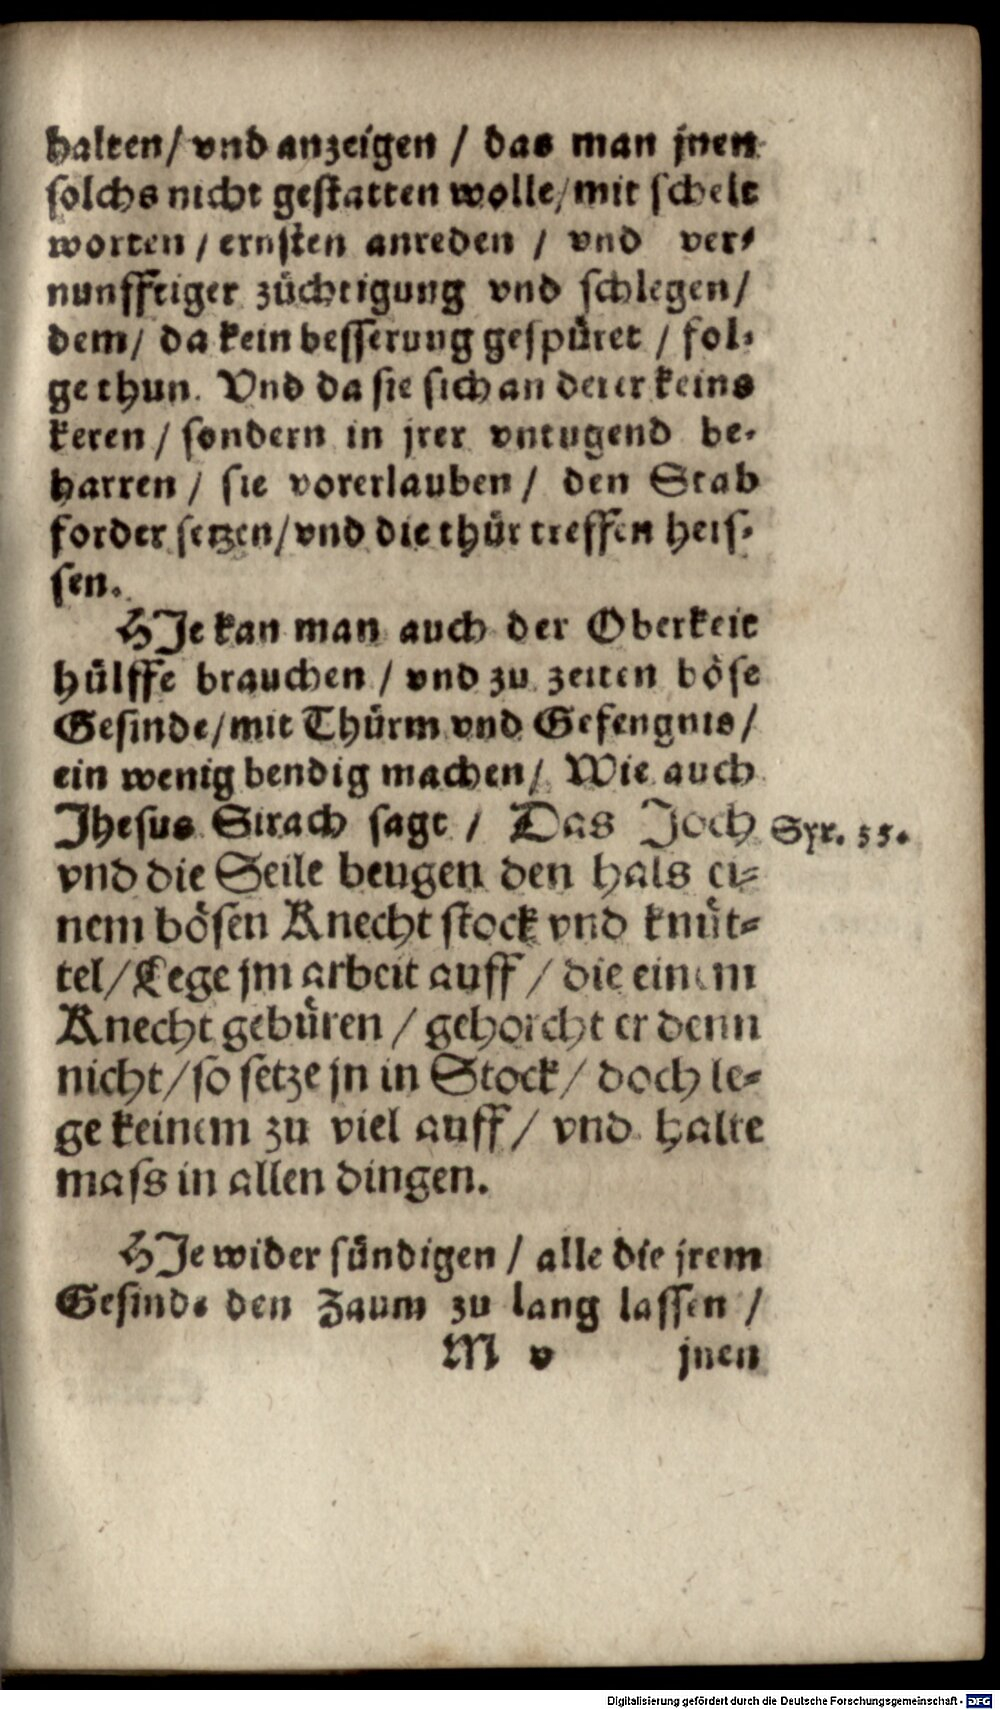 halten / vnd anzeigen / das man jnen
solchs nicht gestatten wolle / mit schelt
worten / ernsten anreden / vnd ver⸗
nunfftiger züchtigung vnd schlegen /
dem / da kein besserung gespüret / fol⸗
ge thun. Vnd da sie sich an derer keins
keren / sondern in jrer vntugend be⸗
harren / sie vorerlauben / den Stab
forder setzen / vnd die thür treffen heis⸗
sen.
HIe kan man auch der Oberkeit
hülffe brauchen / vnd zu zeiten böse
Gesinde / mit Thürm vnd Gefengnis /
ein wenig bendig machen / Wie auch
Jhesus Sirach sagt / Das Joch
Syr. 33.
vnd die Seile beugen den hals ei⸗
nem bösen Knecht stock vnd knüt⸗
tel / Lege jm arbeit auff / die einem
Knecht gebüren / gehorcht er denn
nicht / so setze jn in Stock / doch le⸗
ge keinem zu viel auff / vnd halte
mass in allen dingen.
HIe wider sündigen / alle die jrem
Gesinde den Zaum zu lang lassen /
M v jnen
Digitalisierung gefördert durch die Deutsche Forschungsgemeinschaft - DFG